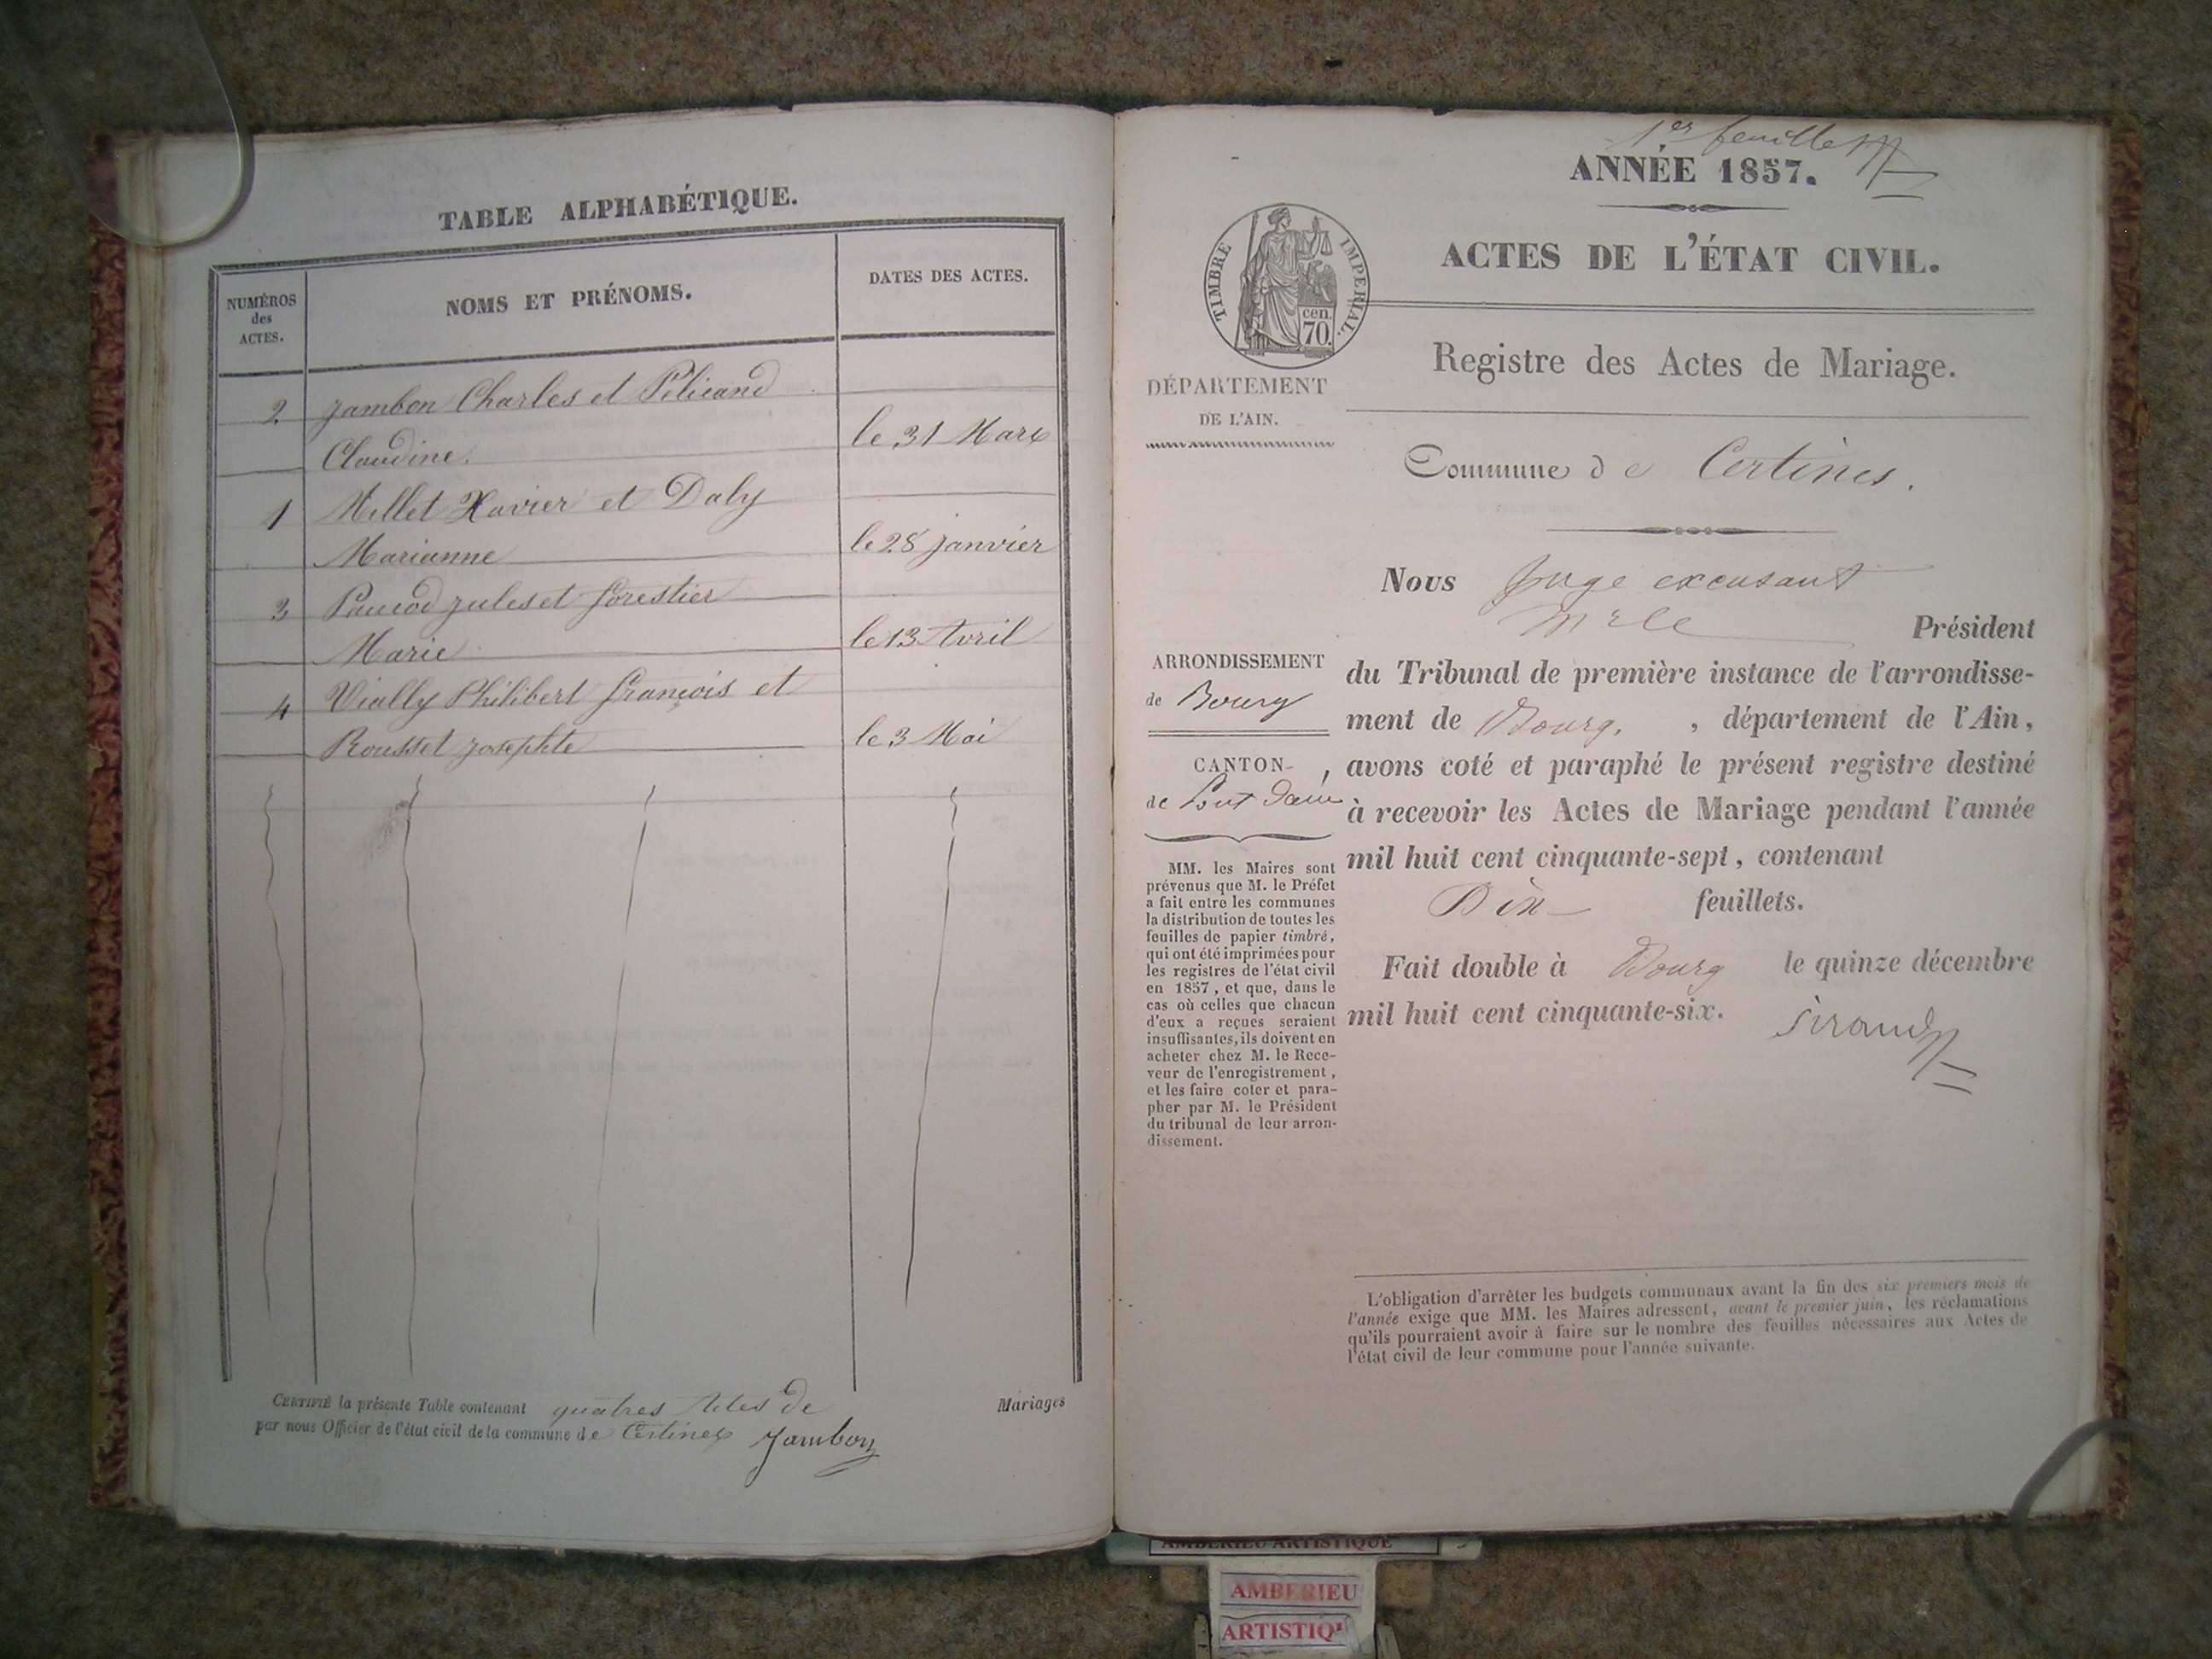 TABLE ALPHABÉTIQUE.
NUMÉROS
des
ACTES.
NOMS ET PRÉNOMS.
DATES DES ACTES.
2 Jambon Charles et Pélicand
Claudine. le 31 Mars
1 Millet Xavier et Daly
Marianne le 28 Janvier
3 Paucod Jules et forestier
Marie le 13 Avril
4 Vially Philibert François et
Rousset Josephte le 3 Mai
CERTIFIÉ la présente Table contenant quatres Actes de Mariages
par nous Officier de l'état civil de la commune de Certines Jambon
1er feuillet
ANNÉE 1857.
ACTES DE L'ÉTAT CIVIL.
TIMBRE IMPERIAL.
cen.
70.
Registre des Actes de Mariage.
DÉPARTEMENT
DE L'AIN.
Commune de Certines.
Nous Juge excusant
Mr le Président
du Tribunal de première instance de l'arrondisse-
ment de Bourg, , département de l'Ain,
avons coté et paraphé le présent registre destiné
à recevoir les Actes de Mariage pendant l'année
mil huit cent cinquante-sept, contenant
Dix feuillets.
Fait double à Bourg le quinze décembre
mil huit cent cinquante-six.
Sirand
ARRONDISSEMENT
de Bourg
CANTON ,
de Pont d'ain
MM. les Maires sont
prévenus que M. le Préfet
a fait entre les communes
la distribution de toutes les
feuilles de papier timbré,
qui ont été imprimées pour
les registres de l'état civil
en 1857, et que, dans le
cas où celles que chacun
d'eux a reçues seraient
insuffisantes, ils doivent en
acheter chez M. le Rece-
veur de l'enregistrement,
et les faire coter et para-
pher par M. le Président
du tribunal de leur arron-
dissement.
L'obligation d'arrêter les budgets communaux avant la fin des six premiers mois de
l'année exige que MM. les Maires adressent, avant le premier juin, les réclamations
qu'ils pourraient avoir à faire sur le nombre des feuilles nécessaires aux Actes de
l'état civil de leur commune pour l'année suivante.
AMBERIEU ARTISTIQUE
AMBERIEU
ARTISTIQ